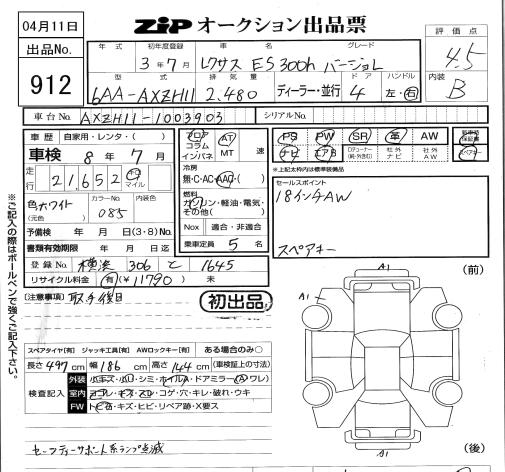 04月11日
ZiP オークション出品票
評価点
4.5
出品No.
912
年式 初年度登録 車名 グレード
3年7月 レクサス ES300h バージョンL
内装
B
型式 排気量 ドア ハンドル
6AA-AXZH11 2.480 ディーラー・並行 4 左・右
車台No. AXZH11-1003903 シリアルNo.
車歴 自家用・レンタ・( )
車検 8年7月
走行 21,652 キロ マイル
フロア コラム インパネ
AT MT 速
冷房
無・C・AC・AAC・( )
PS PW SR 革 AW
ナビ エアB 社外ナビ 社外AW
新車時保証書
スペアキー
※上記太枠内は標準装備品
色 ホワイト (元色)
カラーNo. 085
内装色
燃料
ガソリン・軽油・電気・その他( )
Nox 適合・非適合
乗車定員 5名
セールスポイント
18インチAW
スペアキー
予備検 年 月 日(3・8)No.
書類有効期限 年 月 日迄
登録No. 横浜 306 て 1645
リサイクル料金 有(¥11790) 未
[注意事項] 取・手後日
初出品
(前)
A1
A1
スペアタイヤ[有] ジャッキ工具[有] AWロックキー[有] ある場合のみ○
長さ 497cm 幅 186cm 高さ 144cm (車検証上の寸法)
検査記入
外装 小キズ・小凹・シミ・ホイルA・ドアミラー(A・ワレ)
室内 ヨゴレ・キズ・スレ・コゲ・穴・キレ・破れ・ウキ
FW トビ石・キズ・ヒビ・リペア跡・X要ス
セーフティーサポート系ランプ点滅
A1
(後)
※ご記入の際はボールペンで強くご記入下さい。